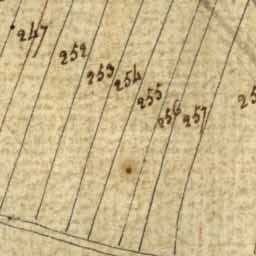 247
252
253
254
255
256
257